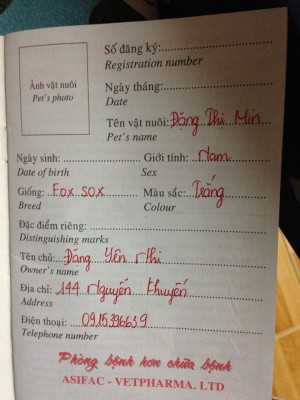 Số đăng ký:
Registration number
Ảnh vật nuôi
Pet's photo
Ngày tháng:
Date
Tên vật nuôi: Đăng Thị Min
Pet's name
Ngày sinh: Giới tính: Nam
Date of birth Sex
Giống: Fox sox Màu sắc: Trắng
Breed Colour
Đặc điểm riêng:
Distinguishing marks
Tên chủ: Đăng Yến Nhi
Owner's name
Địa chỉ: 144 Nguyễn Khuyến
Address
Điện thoại: 0915396639
Telephone number
Phòng bệnh hơn chữa bệnh
ASIFAC - VETPHARMA. LTD